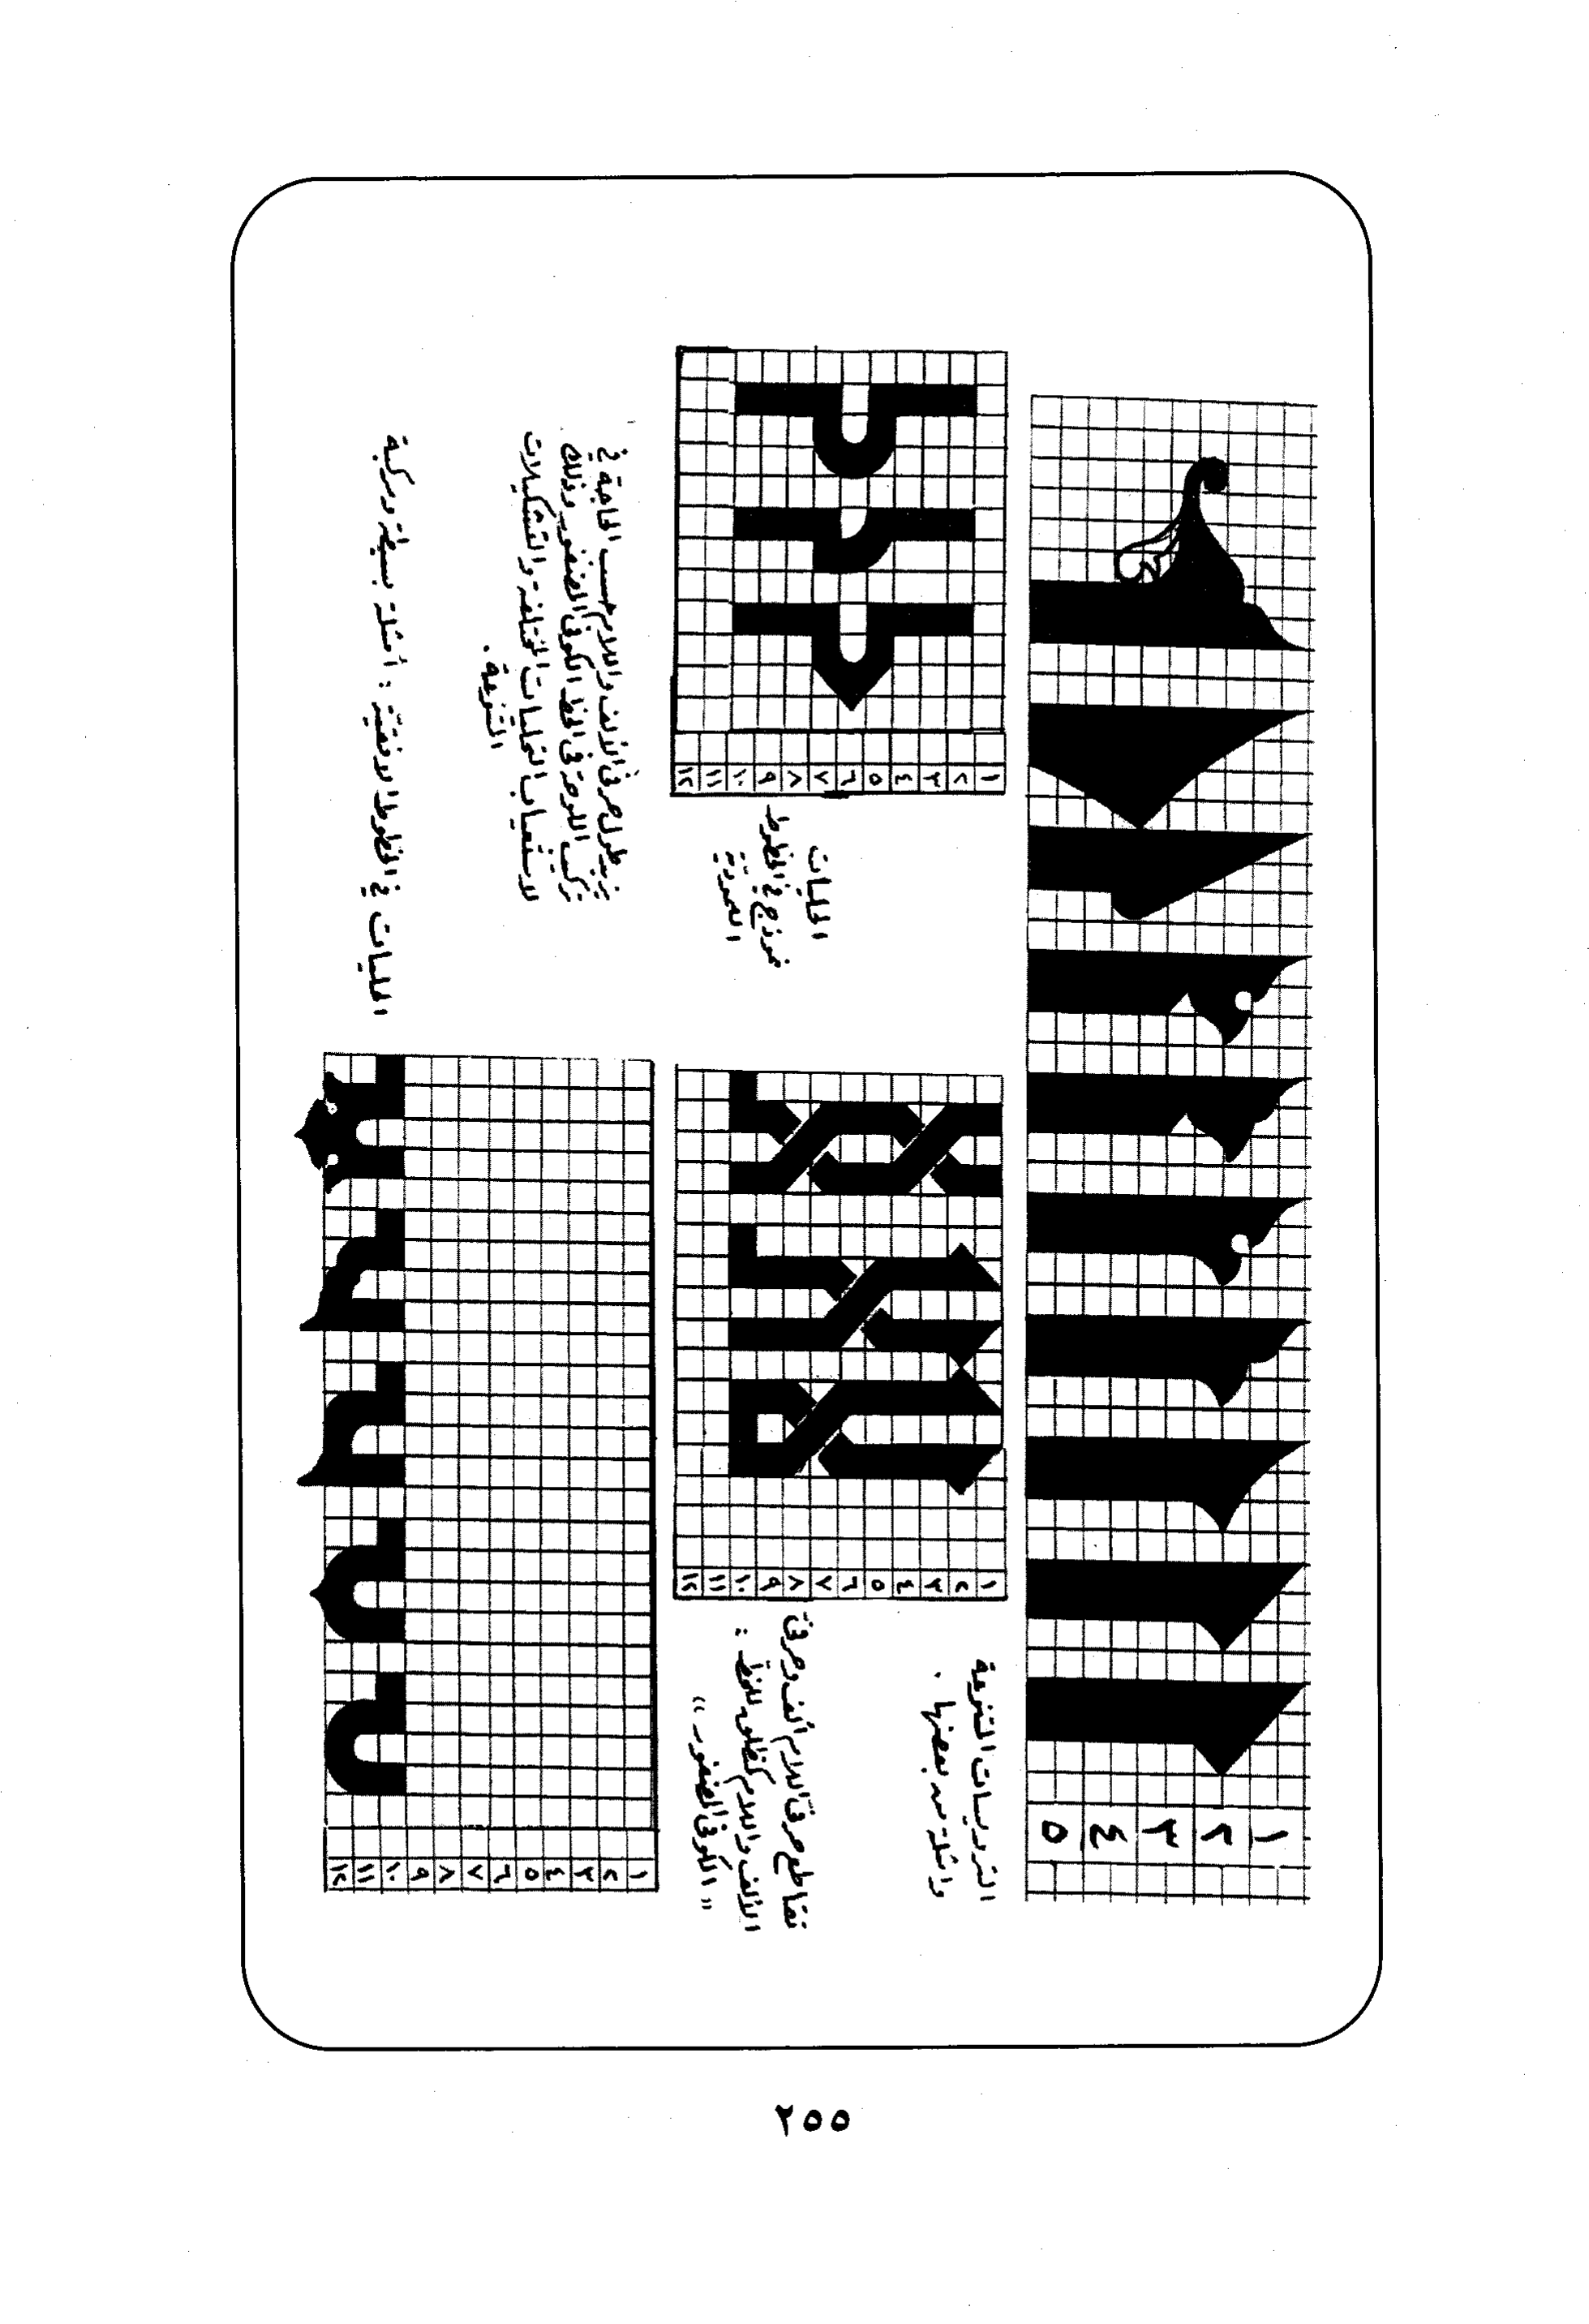 ١
٢
٣
٤
٥
الترويسات المتنوعة
وامثلة من بعضها .
١
٢
٣
٤
٥
٦
٧
٨
٩
١٠
١١
١٢
تقاطع حرفي اللام ألف وحرفي
الألف واللام للخط :
« الكوفي المضفور »
١
٢
٣
٤
٥
٦
٧
٨
٩
١٠
١١
١٢
الحليات
نموذج في الخطوط
العمودية
يزيد طول حرفي الألف واللام حسب الحاجة في
تركيب اللوحة في الخط الكوفي المضفور وذلك
لاستيعاب الحليات المختلفة والتشكيلات
المتنوعة .
١
٢
٣
٤
٥
٦
٧
٨
٩
١٠
١١
١٢
الحليات في الخطوط الافقية : أمثلة بسيطة ومركبة
٢٥٥